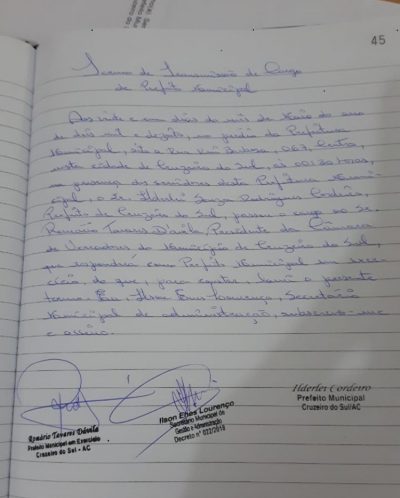 45
Termo de Transmissão de Cargo
de Prefeito Municipal
Aos vinte e um dias do mês de Maio do ano
de dois mil e dezoito, no prédio da Prefeitura
Municipal, sito a Rua Rui Barbosa, 067, Centro,
nesta cidade de Cruzeiro do Sul, às 00:30 horas,
na presença dos servidores desta Prefeitura Munici-
pal, o Sr. Ilderlei Souza Rodrigues Cordeiro,
Prefeito de Cruzeiro do Sul, passou o cargo ao Sr.
Romário Tavares D'ávila, Presidente da Câmara
de Vereadores do Município de Cruzeiro do Sul,
que responderá como Prefeito Municipal em exer-
cício, do que, para constar, lavrei o presente
termo. Eu, Ilson Enes Lourenço, Secretário
Municipal de administração, subscrevo-me
e assino.
Romário Tavares Dávila
Prefeito Municipal em Exercício
Cruzeiro do Sul - AC
Ilson Enes Lourenço
Secretário Municipal de
Gestão e Administração
Decreto n° 022/2018
Ilderlei Cordeiro
Prefeito Municipal
Cruzeiro do Sul/AC